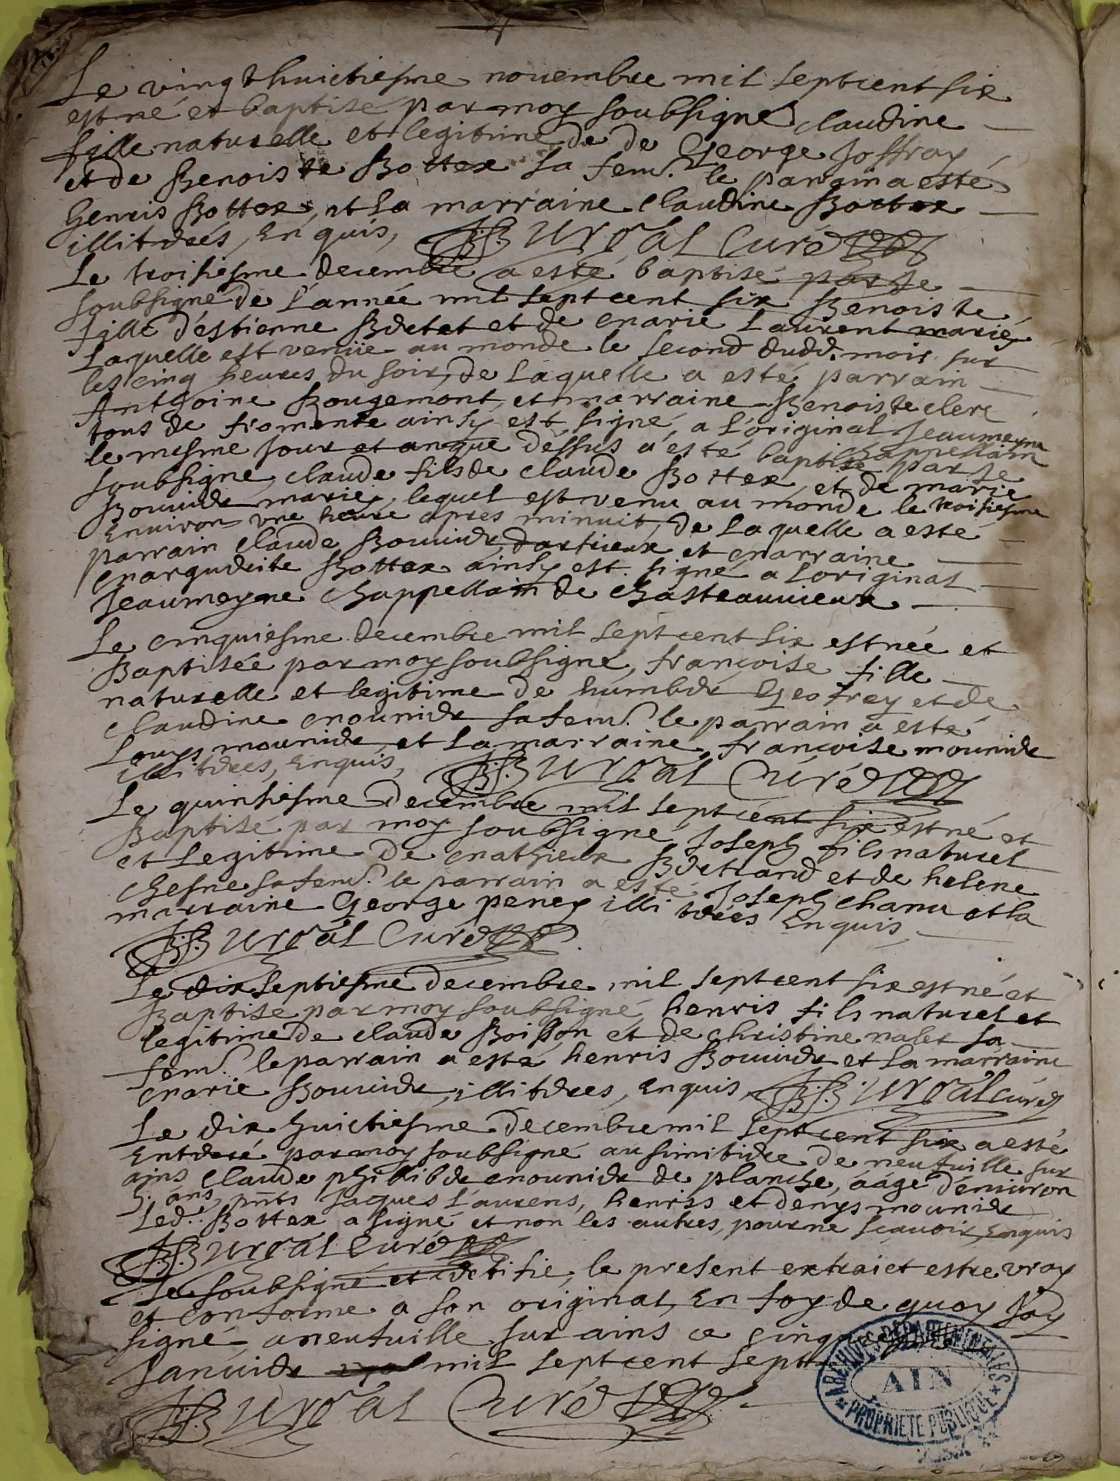 Le vingt huictiesme novembre mil septcent six
est né et baptise par moy soubsigné claudine
fille naturelle et legitime de de George Joffray
et de Benoiste Bottex sa fem. le parrain a esté
henris Bottex, et la marraine claudine Bottex
illiterés, Enquis, Burdal Curé
Le troisiesme decembre a esté baptisé par Je
soubsigné de l'année mil septcent six Benoiste
fille d'estienne Bretet et de marie Laurent mariés
Laquelle est venüe au monde le second dudt. mois sur
les cinq heures du soir, de laquelle a esté parrain
Anthoine Rougemont et marraine Benoiste clerc
tous de fromente ainsy est signé, a l'original Jeaumeyne
chappellain
le mesme jour et an que dessus a esté baptisé par Je
soubsigne claude fils de claude Bottex et de marie
Bouuier mariés, lequel est venu au monde le troisiesme
Enuiron vne heure apres minuit, de Laquelle a esté
parrain claude Bouuier, et marraine
marguerite Bottex ainsy est signé a Loriginal
Jeaumeyne chappellain de chasteauuieux
Le cinquiesme decembre mil septcent six est née et
Baptisée par moy soubsigné, françoise fille
naturelle et legitime de humber Geofrey et de
claudine mounier sa fem. le parrain a esté
Louys mounier, et La marraine, françoise mounier
illiterés, Enquis, Burdal Curé
Le quinsiesme Decembre mil septcent six est né et
Baptisé par moy soubsigné, Joseph fils naturel
et Legitime de mathieux Bertrand et de helene
chesne sa fem. le parrain a esté Joseph chanu et la
marraine George peney illiterés Enquis
Burdal Curé
Le dix septiesme decembre mil septcent six est né et
Baptise par moy soubsigné henris fils naturel et
legitime de claude Boisson et de christine nalet sa
fem. le parrain a esté henris Bouuier et La marraine
marie Bouuier, illiterés, Enquis Burdal curé
Le dix huictiesme decembre mil septcent six a esté
Enterré par moy soubsigne au simitiere de neufuille sur
ains claude philiber mounier de planche, aagé d'enuiron
5. ans, pnts Jacques Laurens, henris et denys mounier
Led. Bottex a signé et non les autres, pour ne scauoir, Enquis
Burdal Curé
Je soubsigné certifie, le present extraict estre vray
et conforme a son original, En foy de quoy J'ay
signé a neufuille sur ains ce
Januier mil septcent sept
Burdal Curé
ARCHIVES DEPARTEMENTALES
AIN
PROPRIETE PUBLIQUE